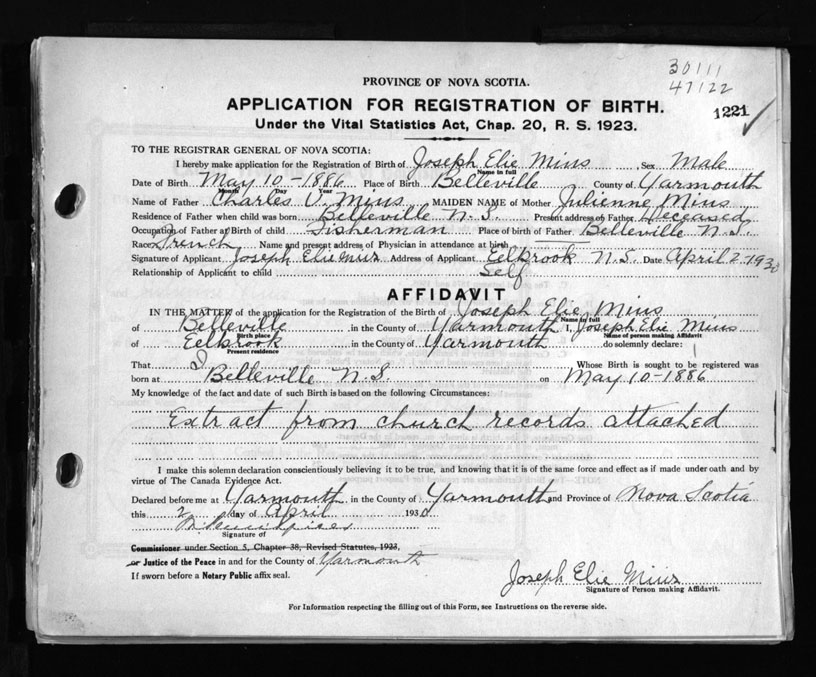 30111
47122
PROVINCE OF NOVA SCOTIA.
1221
APPLICATION FOR REGISTRATION OF BIRTH.
Under the Vital Statistics Act, Chap. 20, R. S. 1923.
TO THE REGISTRAR GENERAL OF NOVA SCOTIA:
I hereby make application for the Registration of Birth of Joseph Elie Mius Sex Male
Name in full
Date of Birth May 10-1886 Place of Birth Belleville County of Yarmouth
Month Day Year
Name of Father Charles V. Mius MAIDEN NAME of Mother Julienne Mius
Residence of Father when child was born Belleville N.S. Present address of Father Deceased
Occupation of Father at Birth of child Fisherman Place of birth of Father Belleville N.S.
Race French Name and present address of Physician in attendance at birth
Signature of Applicant Joseph Elie Mius Address of Applicant Eelbrook N.S. Date April 2-1930
Relationship of Applicant to child Self
AFFIDAVIT
IN THE MATTER of the application for the Registration of the Birth of Joseph Elie Mius
Name in full
of Belleville in the County of Yarmouth I, Joseph Elie Mius
Birth place Name of person making Affidavit
of Eelbrook in the County of Yarmouth do solemnly declare:
Present residence
That I Whose Birth is sought to be registered was
born at Belleville N.S. on May 10-1886
My knowledge of the fact and date of such Birth is based on the following Circumstances:
Extract from church records attached
I make this solemn declaration conscientiously believing it to be true, and knowing that it is of the same force and effect as if made under oath and by
virtue of The Canada Evidence Act.
Declared before me at Yarmouth in the County of Yarmouth and Province of Nova Scotia
this 2 day of April 1930
Signature of
Commissioner under Section 5, Chapter 38, Revised Statutes, 1923,
or Justice of the Peace in and for the County of Yarmouth
If sworn before a Notary Public affix seal.
Joseph Elie Mius
Signature of Person making Affidavit.
For Information respecting the filling out of this Form, see Instructions on the reverse side.